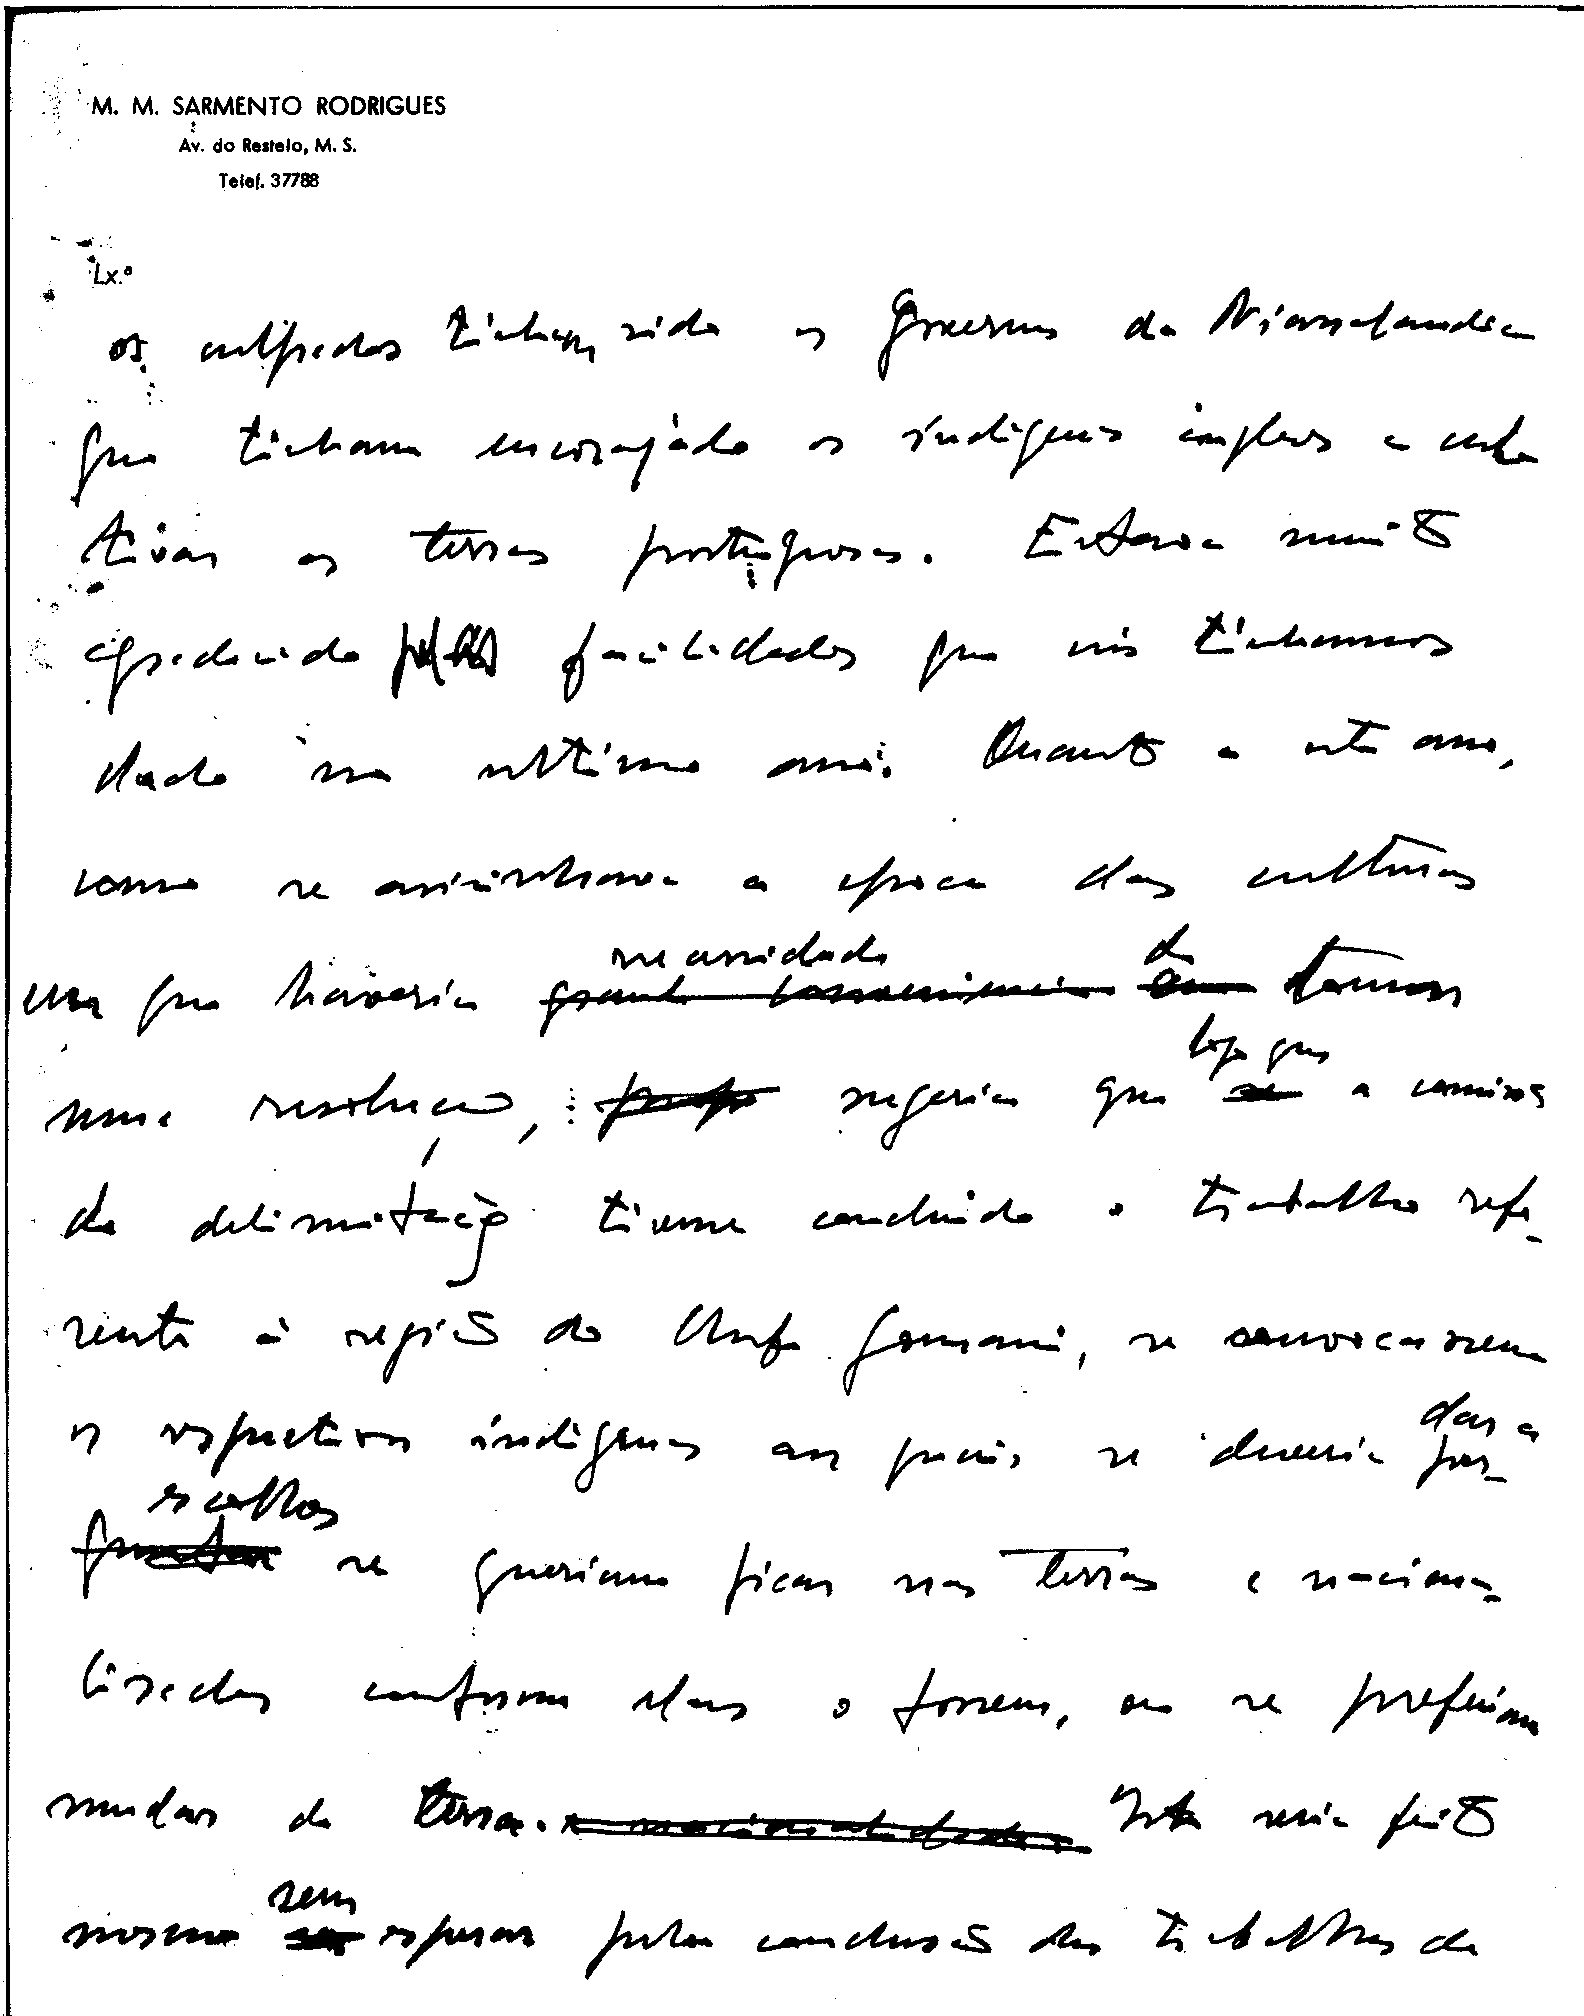 M. M. SARMENTO RODRIGUES
Av. do Restelo, M. S.
Telef. 37788
Lx.ª
os culpados tinham sido os Governos da Niassalandia
que tinham encorajado os indigenas ingleses a cul
tivar as terras portuguesas. Estava muito
agradecido pelas facilidades que nós tinhamos
dado no ultimo ano. Quanto a este ano,
como se avisinhava a epoca das culturas
necessidade de
em que haveria grande conveniencia em tomar
logo que
uma resolução, sugeria que se a comissão
de delimitação tivesse concluido o trabalho refe-
rente à região do Chefe Gomani, se convocassem
os respectivos indigenas aos quais se deveria dar a
escolha per-
guntar se queriam ficar nas terras e naciona-
lisados conforme elas o fossem, ou se preferiam
mudar de terra. e nacionalidade. Isto seria feito
sem
mesmo esperar pela conclusão dos trabalhos de